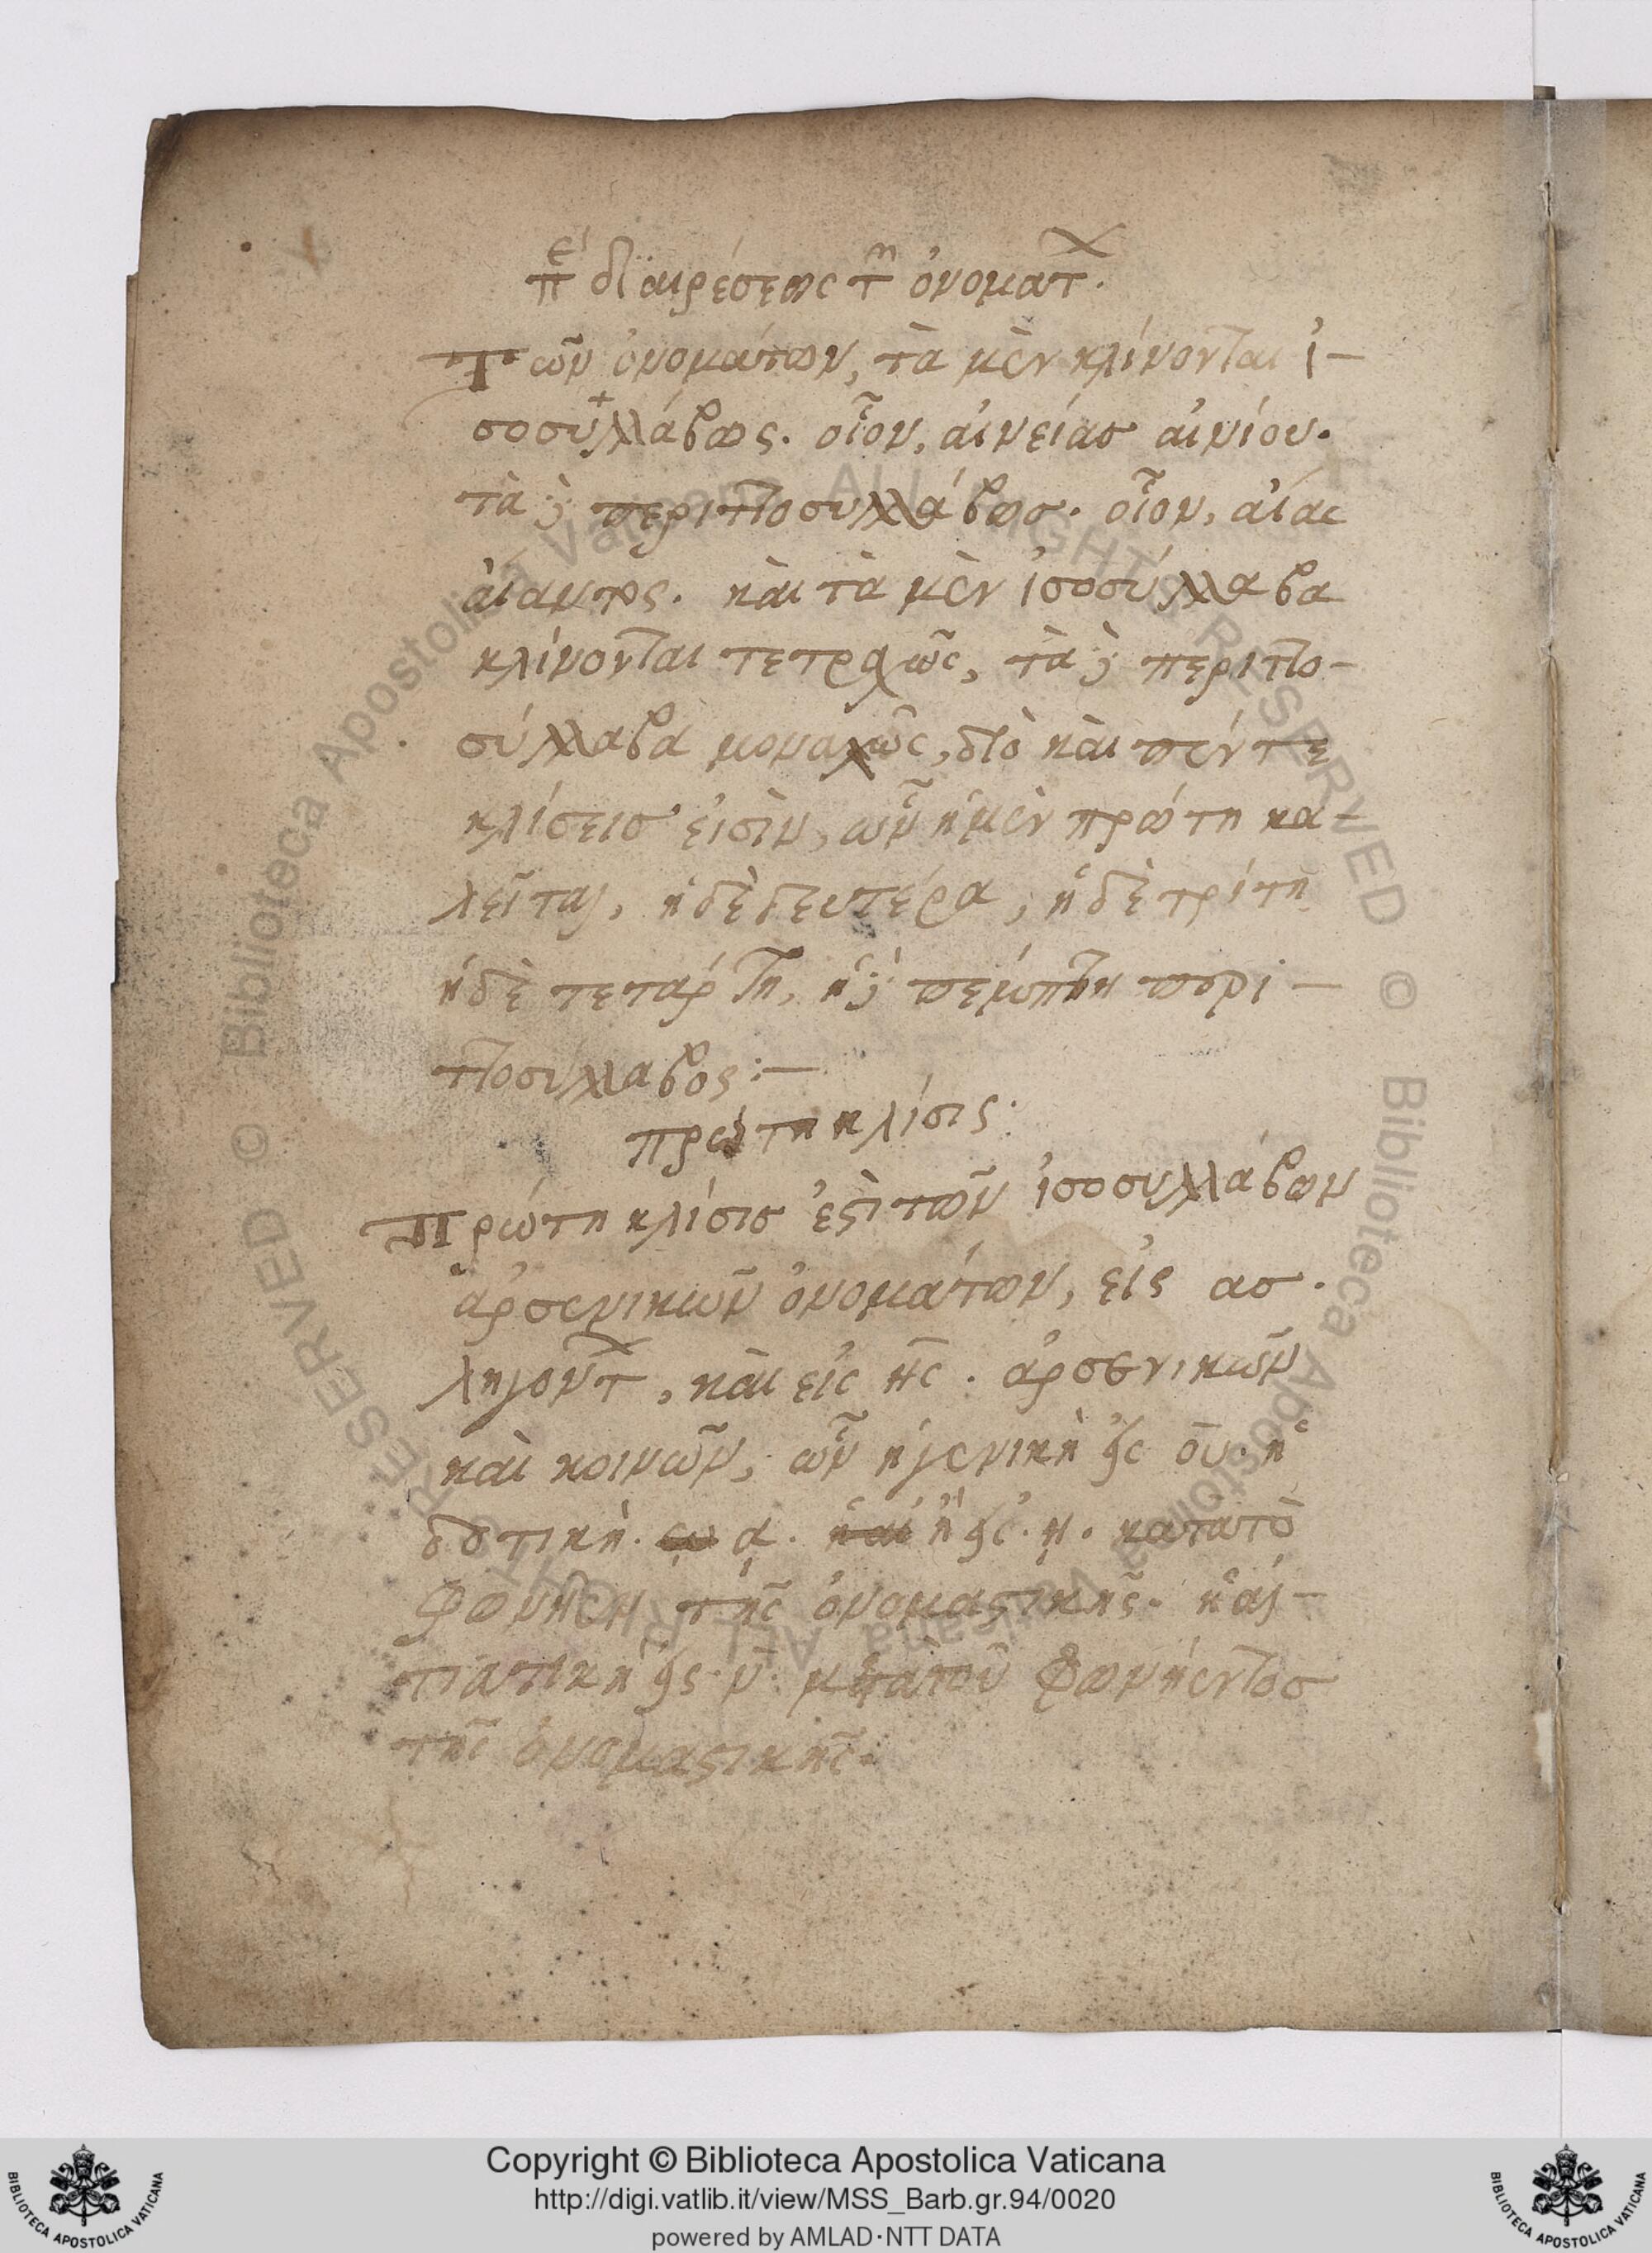 περὶ διαιρέσεως τῶν ὀνομάτων.
Τῶν ὀνομάτων, τὰ μὲν κλίνονται ἰ-
σοσυλλάβως. οἷον, αἰνείας αἰνίου.
τὰ δὲ περιττοσυλλάβως. οἷον, αἴας
αἴαντος. καὶ τὰ μὲν ἰσοσύλλαβα
κλίνονται τετραχῶς, τὰ δὲ περιττο-
σύλλαβα μοναχῶς, διὸ καὶ πέντε
κλίσεις εἰσὶν, ὧν ἡ μὲν πρώτη κα-
λεῖται, ἡ δὲ δευτέρα, ἡ δὲ τρίτη
ἡ δὲ τετάρτη, ἡ δὲ πέμπτη περι-
ττοσύλλαβος:-
πρώτη κλίσις.
Πρώτη κλίσις ἐστὶ τῶν ἰσοσυλλάβων
ἀρσενικῶν ὀνομάτων, εἰς ας.
ληγόντων, καὶ εἰς ης. ἀρσενικῶν
καὶ κοινῶν, ὧν ἡ γενικὴ εἰς ου. ἡ
δοτικὴ. ᾳ. ἢ εἰς. ῃ. κατὰ τὸ
φωνῆεν τῆς ὀνομαστικῆς. ἡ αἰ-
τιατικὴ εἰς. ν. μετὰ τοῦ φωνήεντος
τῆς ὀνομαστικῆς.
Copyright © Biblioteca Apostolica Vaticana
http://digi.vatlib.it/view/MSS_Barb.gr.94/0020
powered by AMLAD·NTT DATA
BIBLIOTECA APOSTOLICA VATICANA
BIBLIOTECA APOSTOLICA VATICANA
© Biblioteca Apostolica Vaticana ALL RIGHTS RESERVED
© Biblioteca Apostolica Vaticana ALL RIGHTS RESERVED